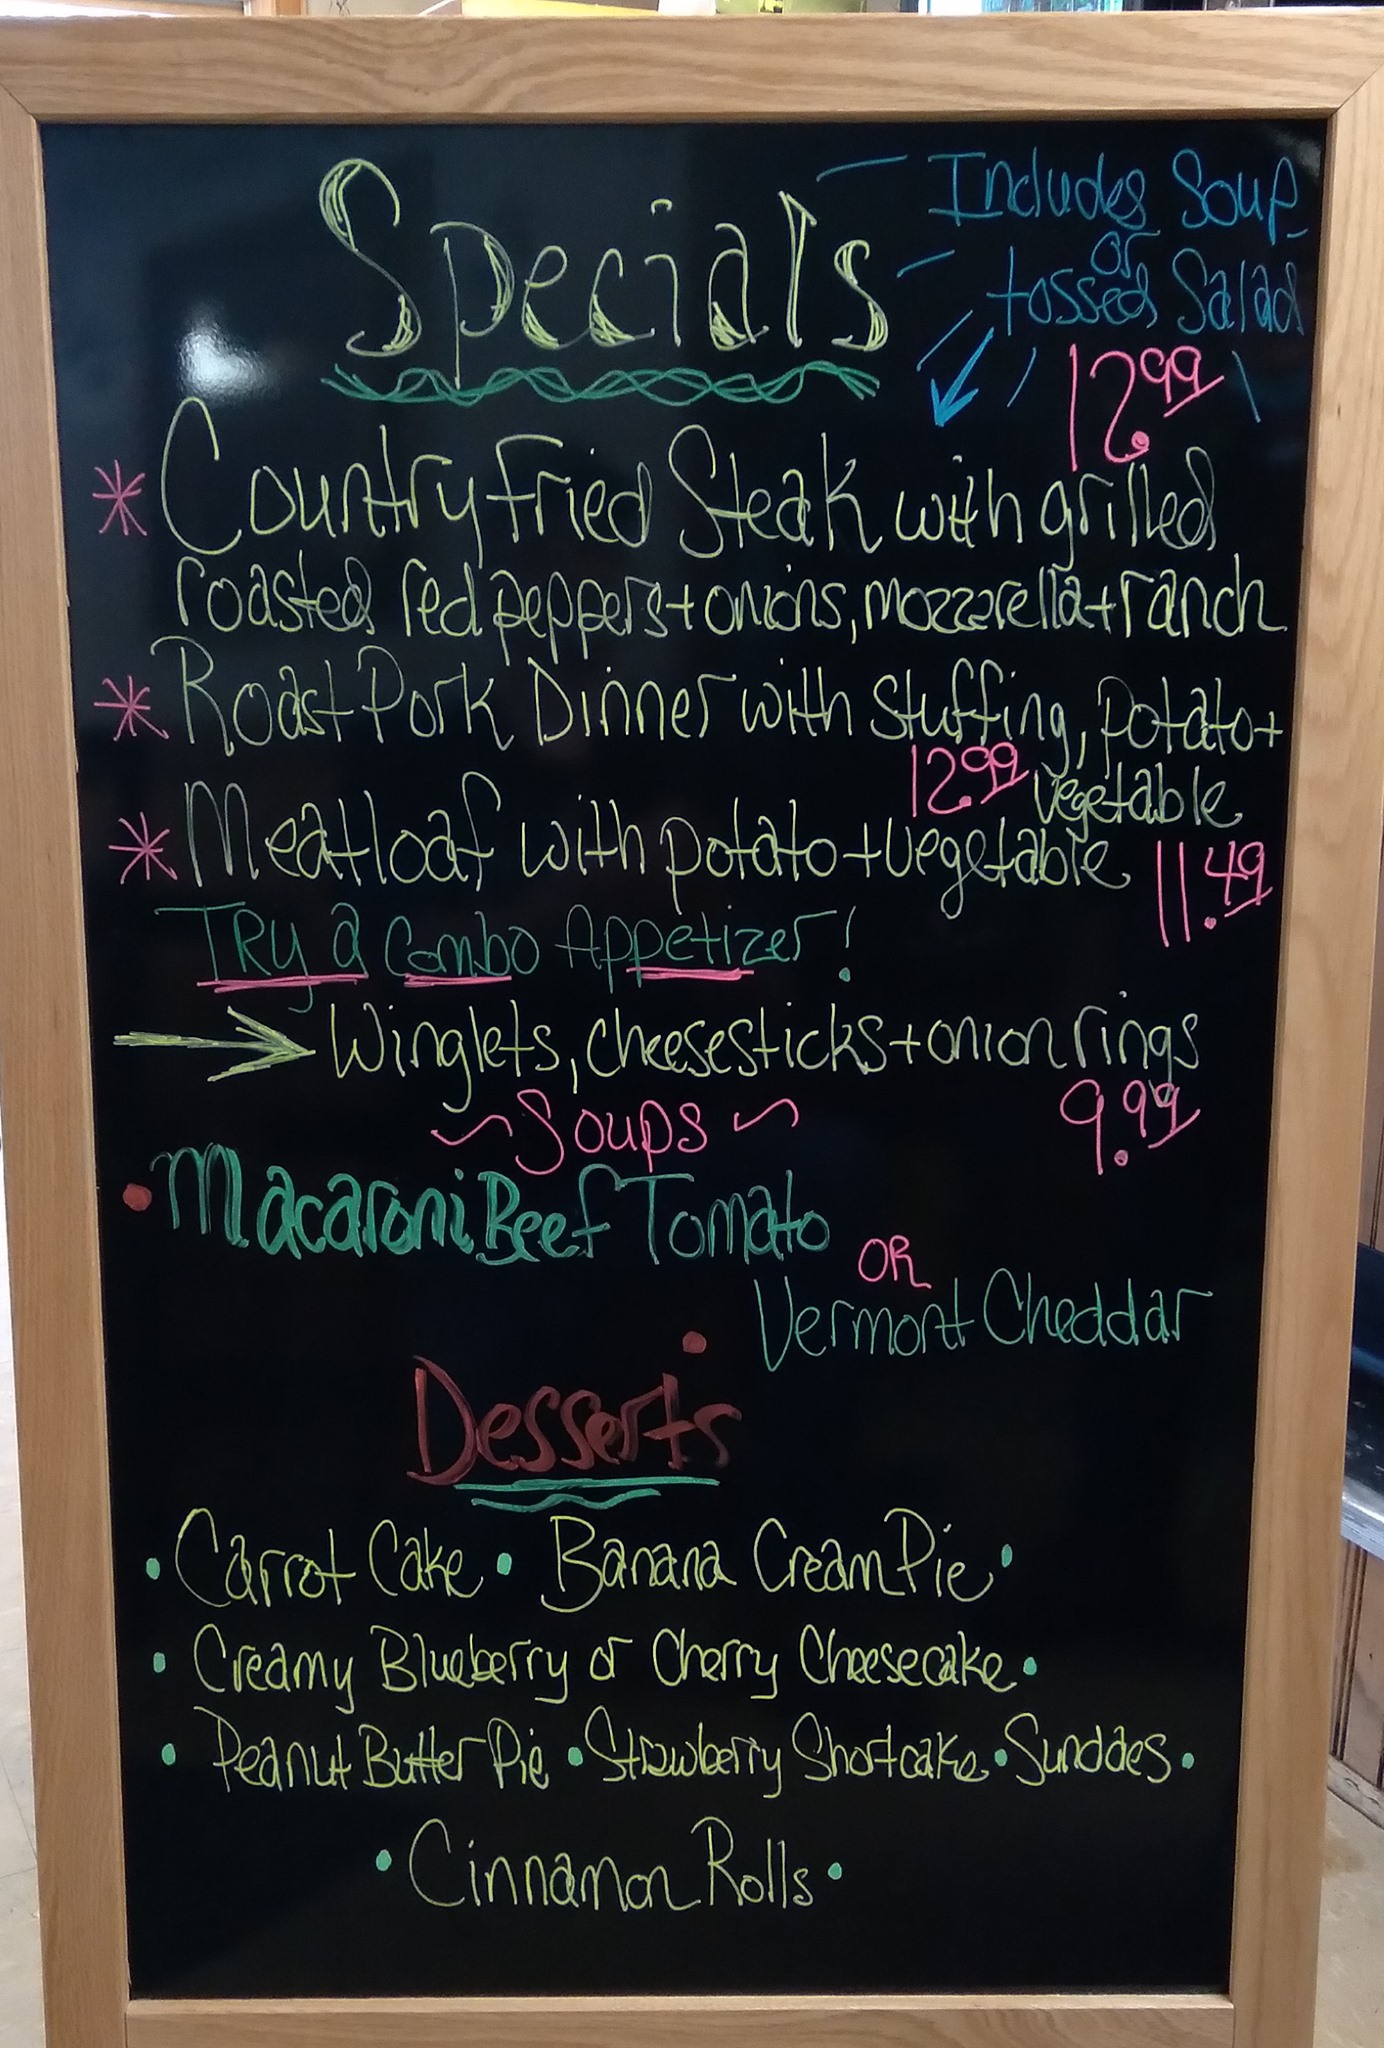 Specials
Includes Soup
or
tossed Salad
12.99
* Country Fried Steak with grilled
roasted red peppers + onions, mozzarella + ranch
* Roast Pork Dinner with stuffing, potato +
vegetable
12.99
* Meatloaf with potato + vegetable 11.49
Try a Combo Appetizer!
Winglets, cheesesticks + onion rings
9.99
~ Soups ~
• Macaroni Beef Tomato
OR
• Vermont Cheddar
Desserts
• Carrot Cake • Banana Cream Pie •
• Creamy Blueberry or Cherry Cheesecake •
• Peanut Butter Pie • Strawberry Shortcake • Sundaes •
• Cinnamon Rolls •